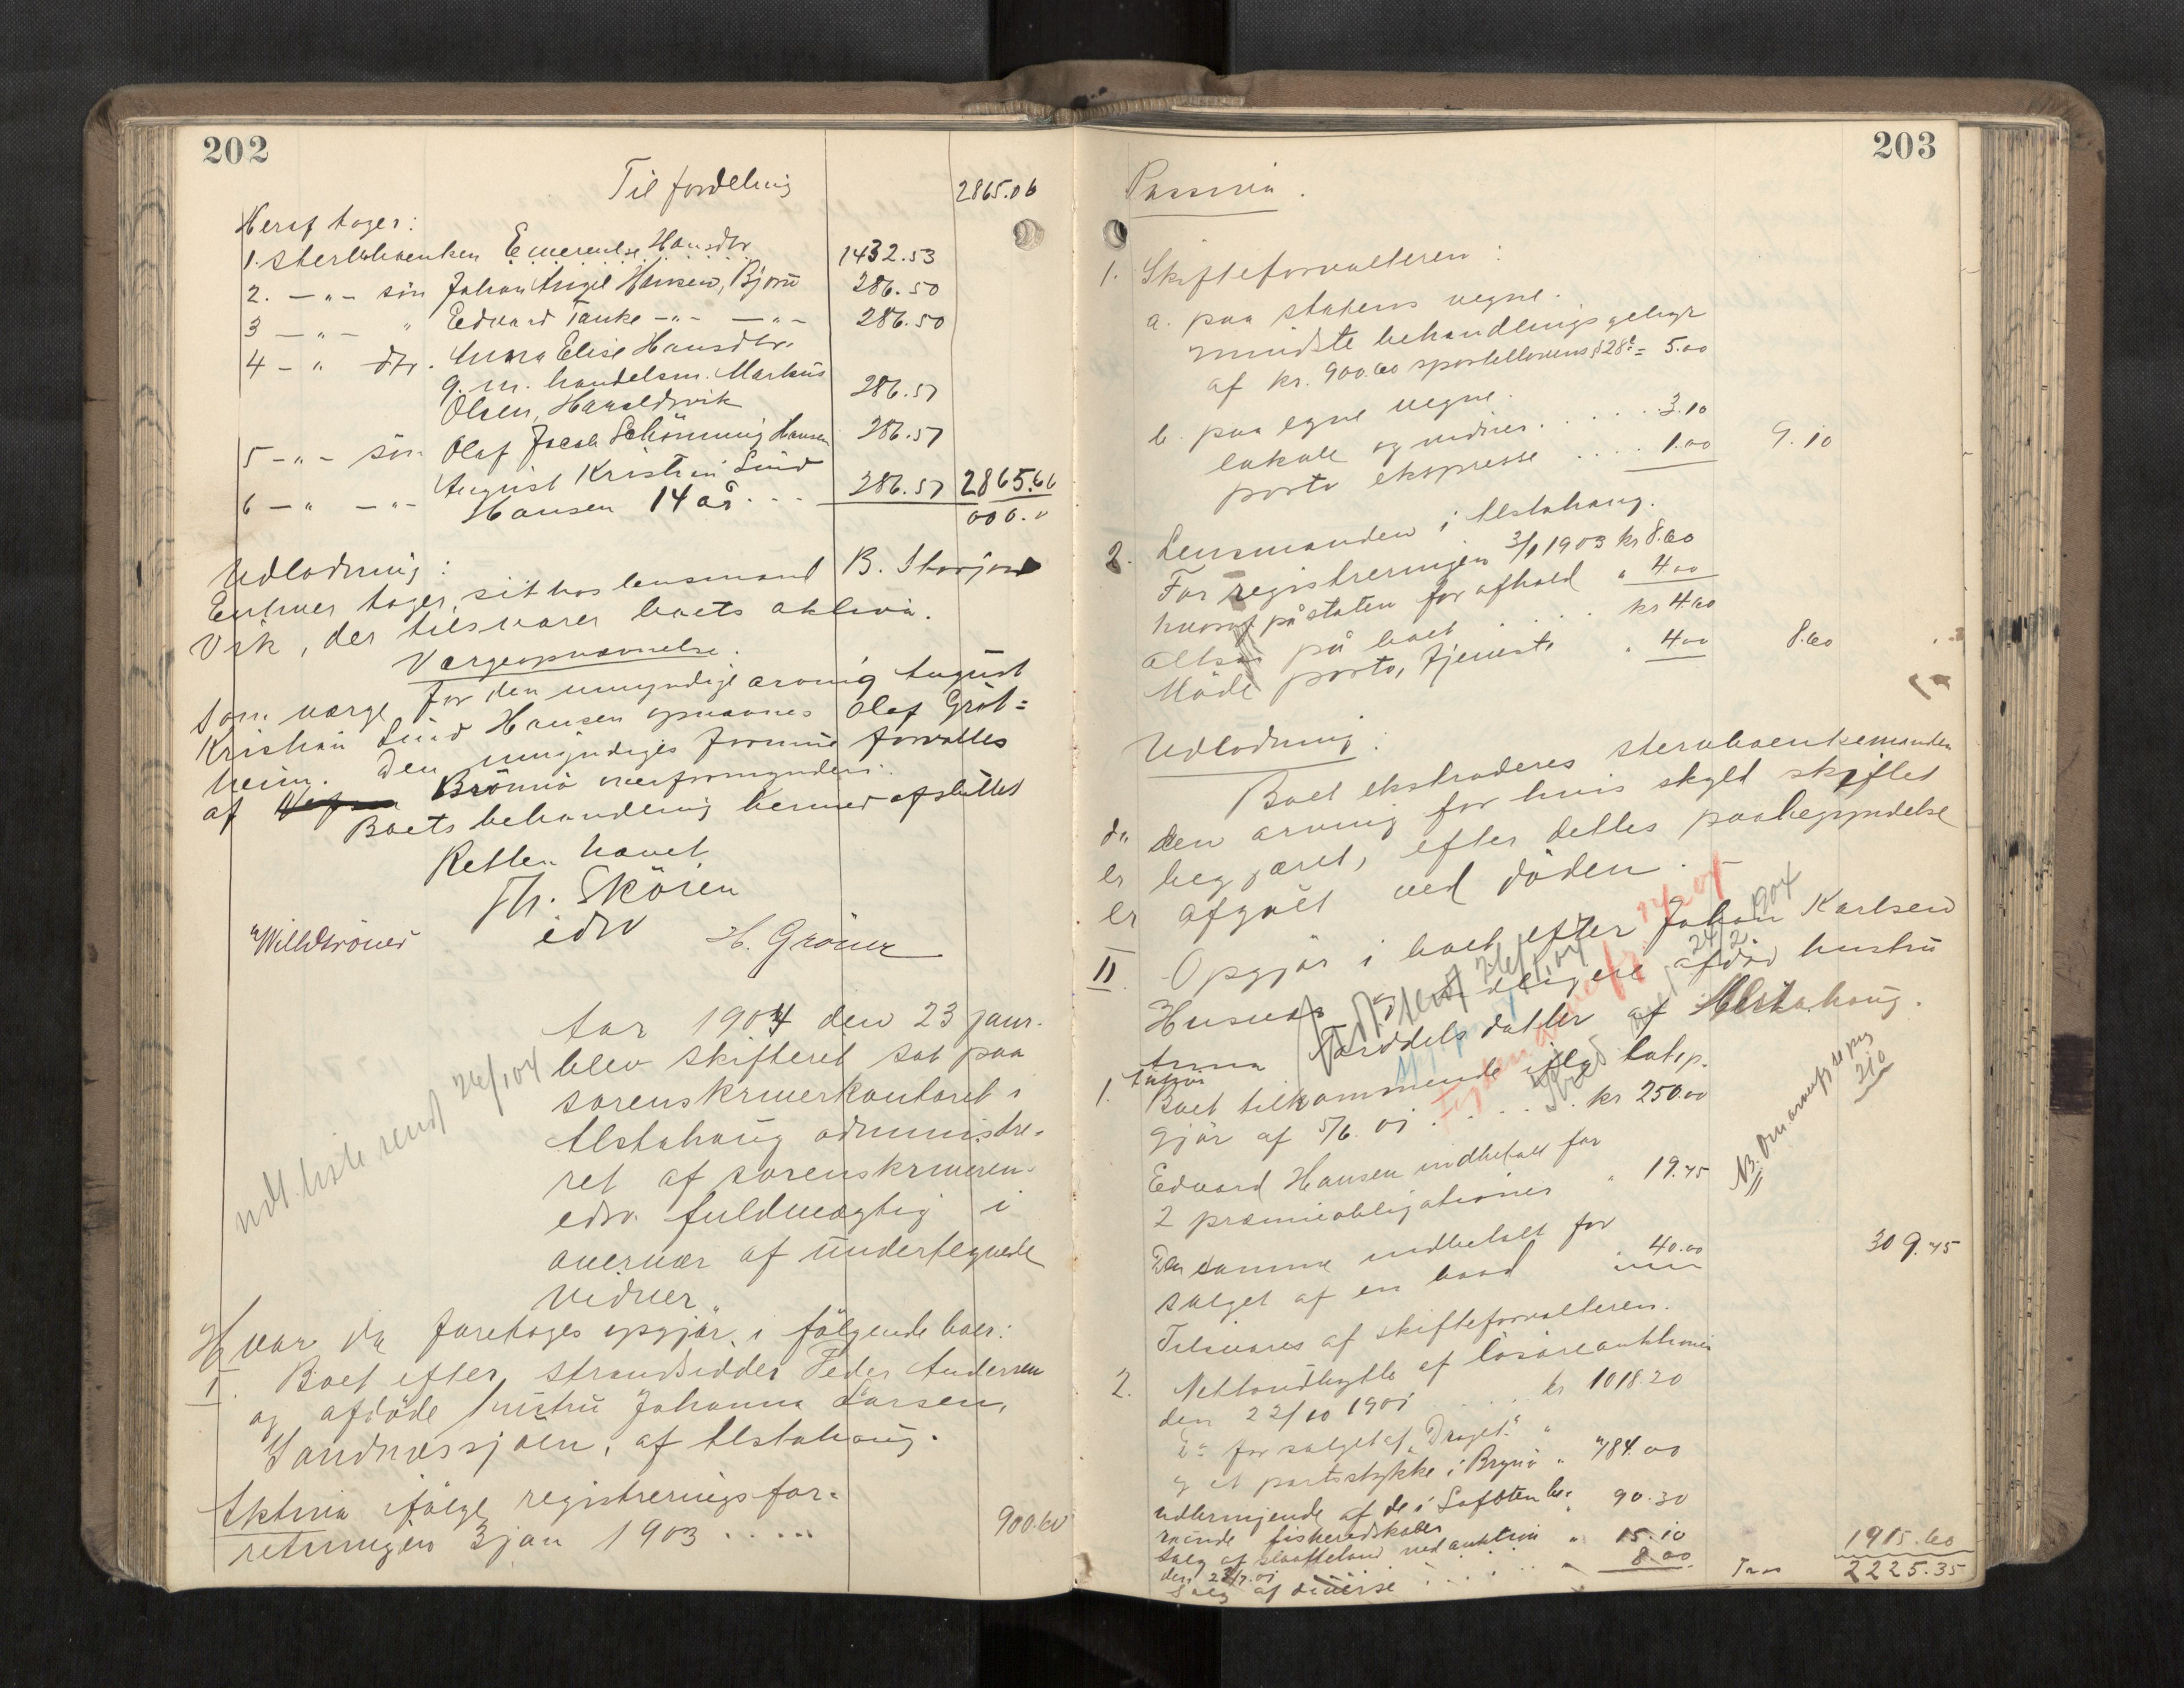 202
Til fordeling 2865.06
Heraf tager:
1. Sterbboenken Emerentse Hansdtr 1432.53
2. -"- søn Johan Angel Hansen, Bjørn 286.50
3 -"- " Edvard Tanke -"- -"- 286.50
4 -" dtr. Anna Elise Hansdtr.
g. m. handelsm. Markus
Olsen, Haraldsvik 286.51
5 -"- søn Olaf Jacob Schönning Hansen 286.51
6 -" -"- August Kristian Lund
Hansen 14 år 286.51 2865.06
000.0
Udlodning:
Enhver tager sit hos lensmand B. Storjord
Vik, der tilsvarer boets aktiva.
Værgeopnævnelse.
Som værge for den umyndige arving August
Kristian Lund Hansen opnævnes Olaf Gröt=
heim. Den umyndiges formue forvaltes
af Brönnö overformynderi.
Boets behandling hermed afsluttet
Retten hævet
Th. Sköien
edsv
H. Gröner
udl. liste sendt 26/1 04
Aar 1904 den 23 janr.
blev skifteret sat paa
sorenskriverkontoret i
Alstahaug administre-
ret af sorenskriveren
edsv. fuldmægtig i
overvær af undertegnede
vidner.
Hvor da foretoges opgjør i følgende boer:
I. Boet efter strandsidder Peder Andersen
og afdöde hustru Johanna Larsen,
Sandnessjøen, af Alstahaug.
Aktiva ifølge registreringsfor-
retningen 3 jan 1903 ..... 900.60
203
Passiva.
1. Skifteforvalteren:
a. paa statens vegne.
mindste behandlingsgebyr
af kr. 900.60 sportellovens § 28 = 5.00
b. paa egne vegne.
lokale og vidner. . . . . 3.10
porto ekspresse .... 1.00 9.10
2. Lensmanden i Alstahaug.
For registreringen 3/1 1903 kr 8.00
hvoraf på staten for afhold " 4.00
altså på boet . . . . kr 4.00
Møde porto, tjeneste " 4.00 8.00
Udlodning:
Boet ekstraderes stervboenkemanden
da den arving for hvis skyld skiftet
er begjæret, efter dettes paabegyndelse
er afgået ved døden.
II. Opgjør i boet efter Johan Karlsen
Husvær og tidligere afdød hustru
Anna datter af Alstahaug.
Aktiva
1. Boet tilkommende ifølge
gjør af 5/6. 01 . . . . kr 250.00
Edvard Hansen indbetalt for
2 præmieobligationer " 19.75
Den samme indbetalt for
salget af en baad " 40.00 309.75
Tilsvares af skifteforvalteren.
2. Nettoudbytte af løsøreauktionen
den 22/10 1901 . . . kr 1018.20
Do for salget af "Draget" "
og et partsstykke i Brynö " 784.00
udbringende af de i Lofoten be-
roende fiskeredskaber " 90.30
Salg af ved auktion " 15.10
den 22/7.01
Salg af diverse . . . . " 8.00 1915.60
Trs 2225.35
NB. Om se pag
210